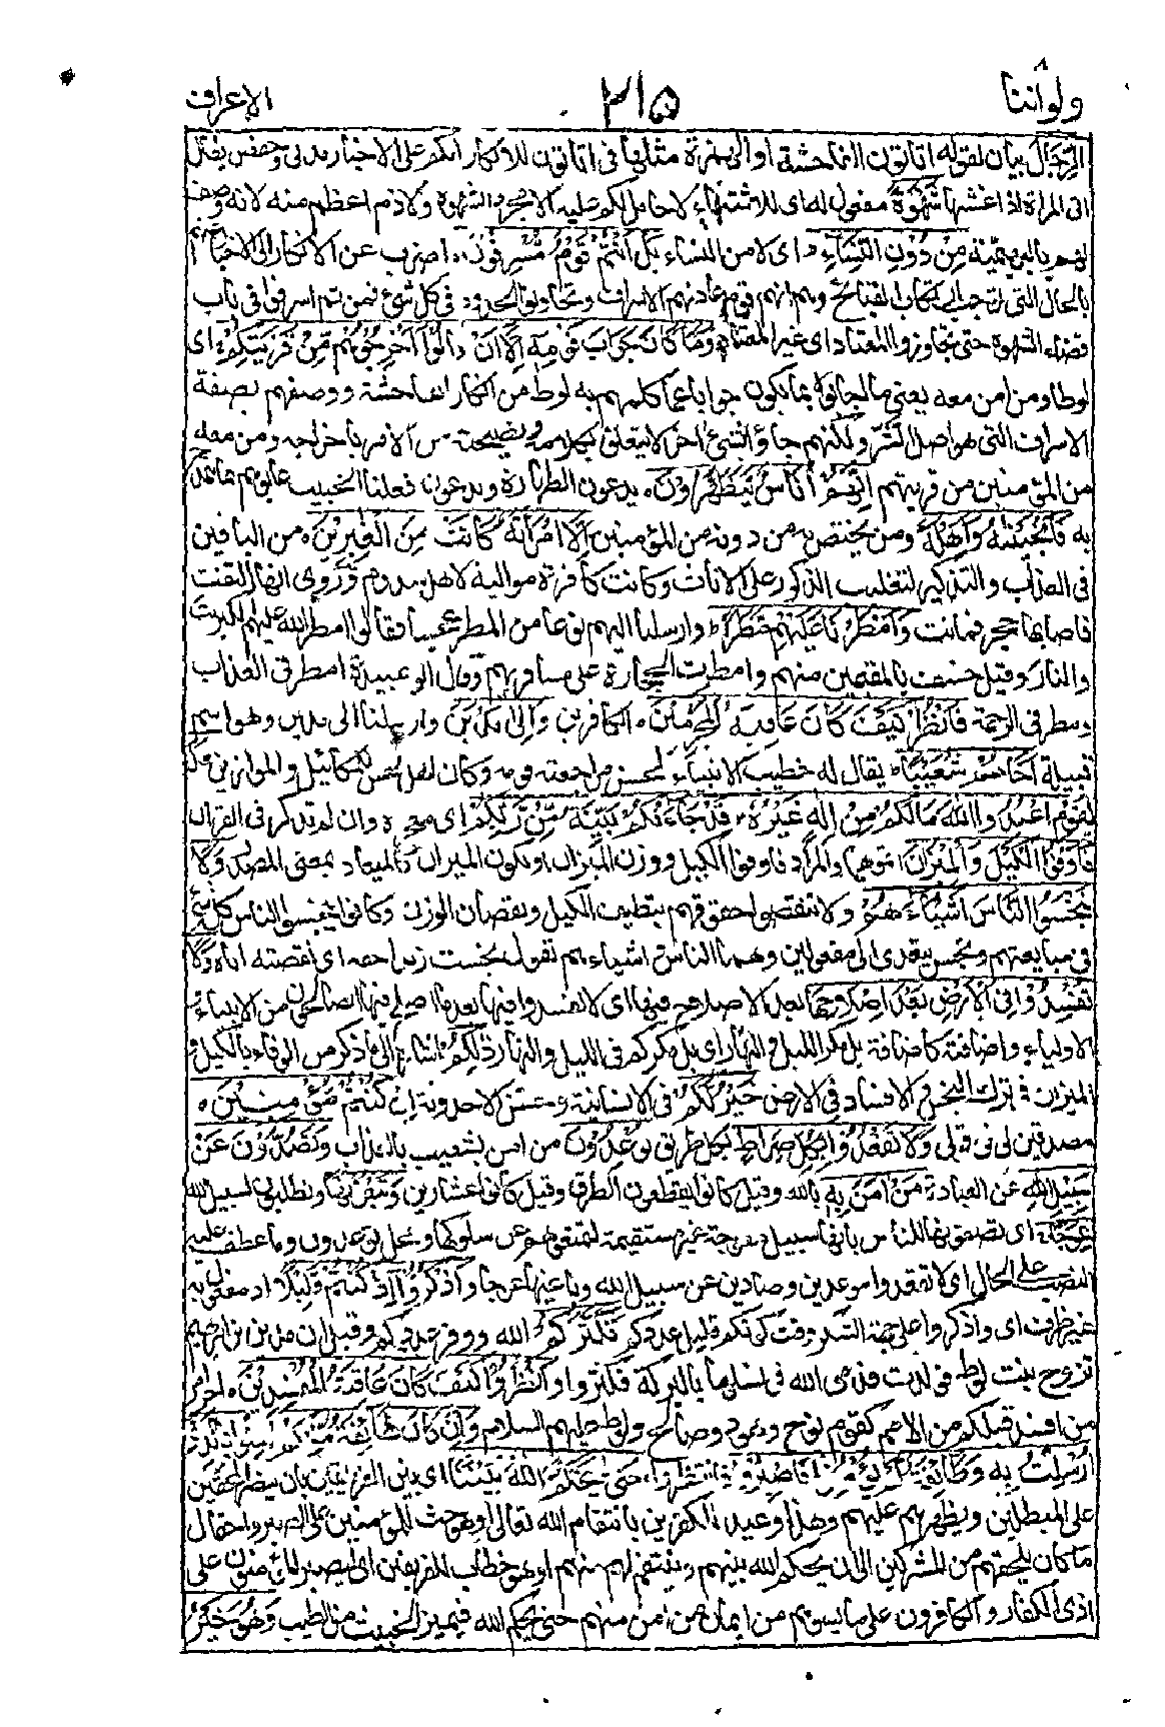 ولواننا ٨
٢١٥
الاعراف
الرِّجَالَ بيان لقوله اتاتون الفاحشة او الهمزة مثلها فى اتاتون للانكار انكم على الاخبار مدنى وحفص يقال
اتى المراة اذا غشيها شَهْوَةً مفعول له اى للاشتهاء لا حامل لكم عليه الا مجرد الشهوة ولا ذم اعظم منه لانه وصف
لهم بالبهيمية مِنْ دُوْنِ النِّسَاءِ اى لا من النساء بَلْ اَنْتُمْ قَوْمٌ مُّسْرِفُوْنَ ه اضرب عن الانكار الى الاخبار عنهم
بالحال التى توجب ارتكاب القبائح وهو انهم قوم عادتهم الاسراف وتجاوز الحدود فى كل شئ فمن ثم اسرفوا فى باب
قضاء الشهوة حتى تجاوزوا المعتاد اى غير المعتاد وَمَا كَانَ جَوَابَ قَوْمِهٖ اِلَّا اَنْ قَالُوْا اَخْرِجُوْهُمْ مِّنْ قَرْيَتِكُمْ اى
لوطا ومن امن معه يعنى ما اجابوه بما يكون جوابا عما كلمهم به لوط من انكار الفاحشة ووصفهم بصفة
الاسراف التى هو اصل الشر ولكنهم جاؤا بشئ اخر لا يتعلق بكلامه ونصيحته من الامر باخراجه ومن معه
من المؤمنين من قريتهم اِنَّهُمْ اُنَاسٌ يَّتَطَهَّرُوْنَ ه يدعون الطهارة ويدعون فعلنا الخبيث عابوهم بما يتمدح
به فَاَنْجَيْنٰهُ وَاَهْلَهٗ ومن يختص به من ذويه من المؤمنين اِلَّا امْرَاَتَهٗ كَانَتْ مِنَ الْغٰبِرِيْنَ ه من الباقين
فى العذاب والتذكير لتغليب الذكور على الاناث وكانت كافرة موالية لاهل سدوم وروى انها التفتت
فاصابها حجر فماتت وَاَمْطَرْنَا عَلَيْهِمْ مَّطَرًا وارسلنا اليهم نوعا من المطر عجيبا فقالوا امطر الله عليهم الكبريت
والنار وقيل خسف بالمقيمين منهم وامطرت الحجارة على مسافريهم وقال ابو عبيدة امطر فى العذاب
ومطر فى الرحمة فَانْظُرْ كَيْفَ كَانَ عَاقِبَةُ الْمُجْرِمِيْنَ ه الكافرين وَاِلٰى مَدْيَنَ وارسلنا الى مدين وهو اسم
قبيلة اَخَاهُمْ شُعَيْبًا يقال له خطيب الانبياء لحسن مراجعته قومه وكان اهل بخس للمكائيل والموازين قال
يٰقَوْمِ اعْبُدُوا اللهَ مَا لَكُمْ مِّنْ اِلٰهٍ غَيْرُهٗ قَدْ جَاءَتْكُمْ بَيِّنَةٌ مِّنْ رَّبِّكُمْ اى معجزة وان لم تذكر فى القران
فَاَوْفُوا الْكَيْلَ وَالْمِيْزَانَ اتموهما والمراد فاوفوا الكيل ووزن الميزان او يكون الميزان كالميعاد بمعنى المصدر وَلَا
تَبْخَسُوا النَّاسَ اَشْيَاءَهُمْ ولا تنقصوا حقوقهم بتطفيف الكيل ونقصان الوزن وكانوا يبخسون الناس كل شئ
فى مبايعتهم وبخس يتعدى الى مفعولين وهما الناس واشياءهم تقول بخست زيدا حقه اى نقصته اياه وَلَا
تُفْسِدُوْا فِى الْاَرْضِ بَعْدَ اِصْلَاحِهَا بعد الاصلاح فيها اى لا تفسدوا فيها بعد ما اصلح فيها الصالحون من الانبياء و
الاولياء واضافته كاضافة بل مكر الليل والنهار اى بل مكركم فى الليل والنهار ذٰلِكُمْ اشارة الى ما ذكر من الوفاء بالكيل و
الميزان وترك البخس والافساد فى الارض خَيْرٌ لَّكُمْ فى الانسانية وحسن الاحدوثة اِنْ كُنْتُمْ مُّؤْمِنِيْنَ ه
مصدقين لى فى قولى وَلَا تَقْعُدُوْا بِكُلِّ صِرَاطٍ بكل طريق تُوْعِدُوْنَ من امن بشعيب بالعذاب وَتَصُدُّوْنَ عَنْ
سَبِيْلِ اللهِ عن العبادة مَنْ اٰمَنَ بِهٖ بالله وقيل كانوا يقطعون الطرق وقيل كانوا عشارين وَتَبْغُوْنَهَا وتطلبون لسبيل الله
عِوَجًا اى تصفونها للناس بانها سبيل معوجة غير مستقيمة لتمنعوهم عن سلوكها ومحل توعدون وما عطف عليه
النصب على الحال اى لا تقعدوا موعدين وصادين عن سبيل الله وباغيها عوجا وَاذْكُرُوْا اِذْ كُنْتُمْ قَلِيْلًا اذ مفعول به
غير ظرف اى واذكروا على جهة الشكر وقت كونكم قليلا عددكم فَكَثَّرَكُمْ الله ووفر عددكم وقيل ان مدين بن ابرهيم
تزوج بنت لوط فولدت فرمى الله فى نسلها بالبركة فكثروا وَانْظُرُوْا كَيْفَ كَانَ عَاقِبَةُ الْمُفْسِدِيْنَ ه اخر امر
من افسد قبلكم من الامم كقوم نوح وهود وصالح ولوط عليهم السلام وَاِنْ كَانَ طَائِفَةٌ مِّنْكُمْ اٰمَنُوْا بِالَّذِىْ
اُرْسِلْتُ بِهٖ وَطَائِفَةٌ لَّمْ يُؤْمِنُوْا فَاصْبِرُوْا فانتظروا حَتّٰى يَحْكُمَ اللهُ بَيْنَنَا اى بين الفريقين بان ينصر المحقين
على المبطلين ويظهرهم عليهم وهذا وعيد للكفرين بانتقام الله تعالى او هو حث للمؤمنين على الصبر واحتمال
ما كان يلحقهم من المشركين الى ان يحكم الله بينهم وينتقم لهم منهم او هو خطاب للفريقين اى ليصبر المؤمنون على
اذى الكفار والكافرون على ما يسوءهم من ايمان من امن منهم حتى يحكم الله فيميز الخبيث من الطيب وَهُوَ خَيْرُ